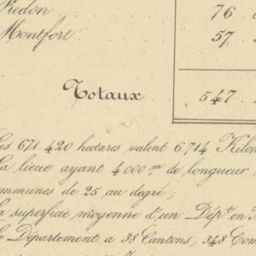 Redon 76
Montfort 57
Totaux 547
Les 671 420 hectares valent 6,714 Kilom
La lieue ayant 4,000m de longueur
communes de 25 au degré,
La superficie moyenne d'un Dépt en
Le Département a 38 Cantons, 348 Com